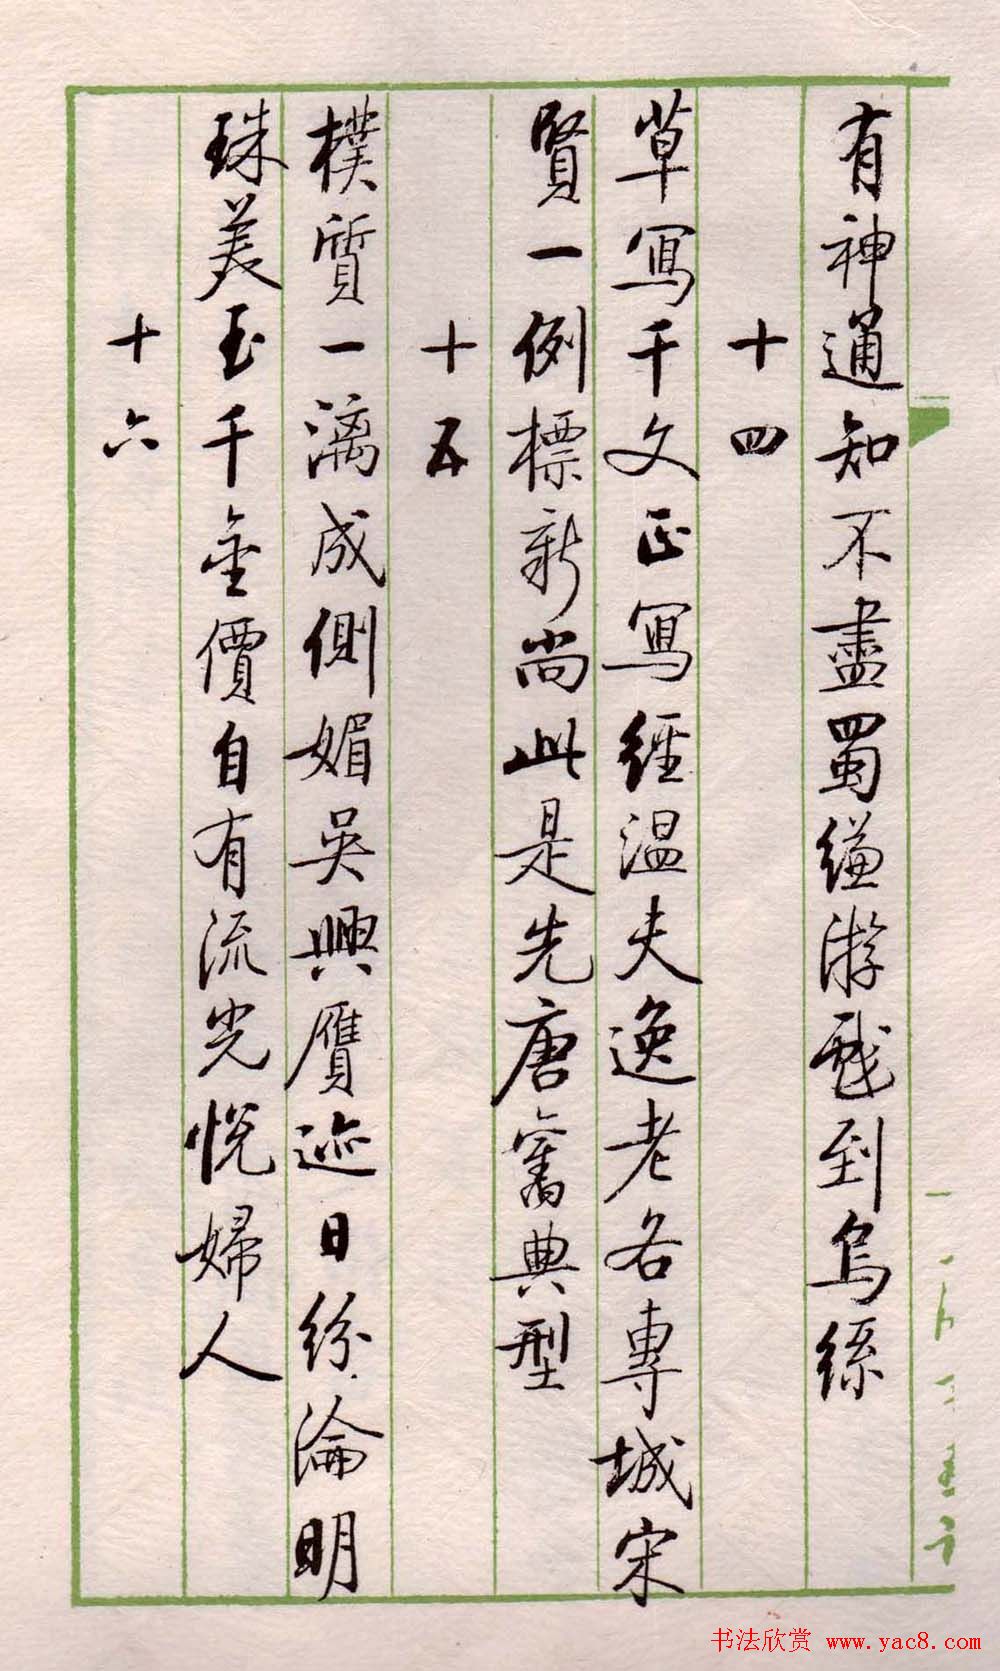 有神通知不盡蜀縑游戲到烏絲
十四
草寫千文正寫經温夫逸老各專城宋
賢一例標新尚此是先唐舊典型
十五
樸質一漓成側媚吳興贋迹日紛淪明
珠美玉千金價自有流光悦婦人
十六
书法欣赏 www.yac8.com